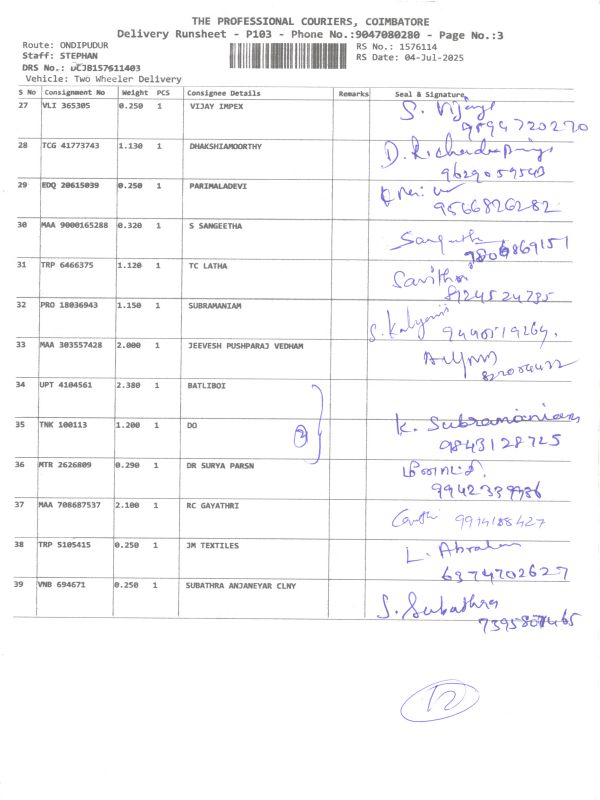 THE PROFESSIONAL COURIERS, COIMBATORE
Delivery Runsheet - P103 - Phone No.:9047080280 - Page No.:3
Route: ONDIPUDUR RS No.: 1576114
Staff: STEPHAN RS Date: 04-Jul-2025
DRS No.: DCJB157611403
Vehicle: Two Wheeler Delivery
S No Consignment No Weight PCS Consignee Details Remarks Seal & Signature
27 VLI 365305 0.250 1 VIJAY IMPEX S. Vijay
9894720270
28 TCG 41773743 1.130 1 DHAKSHIAMOORTHY
9629059543
29 EDQ 20615039 0.250 1 PARIMALADEVI
9566826282
30 MAA 9000165288 0.320 1 S SANGEETHA Sangeetha
31 TRP 6466375 1.120 1 TC LATHA Savitha
8124524735
32 PRO 18036943 1.150 1 SUBRAMANIAM S. Kalyani
33 MAA 303557428 2.000 1 JEEVESH PUSHPARAJ VEDHAM
34 UPT 4104561 2.380 1 BATLIBOI
35 TNK 100113 1.200 1 DO 2 K. Subramaniam
9843128725
36 MTR 2626809 0.290 1 DR SURYA PARSN மீனாட்சி
37 MAA 708687537 2.100 1 RC GAYATHRI 9914188427
38 TRP 5105415 0.250 1 JM TEXTILES L. Abraham
6374702627
39 VNB 694671 0.250 1 SUBATHRA ANJANEYAR CLNY S. Subathra
12